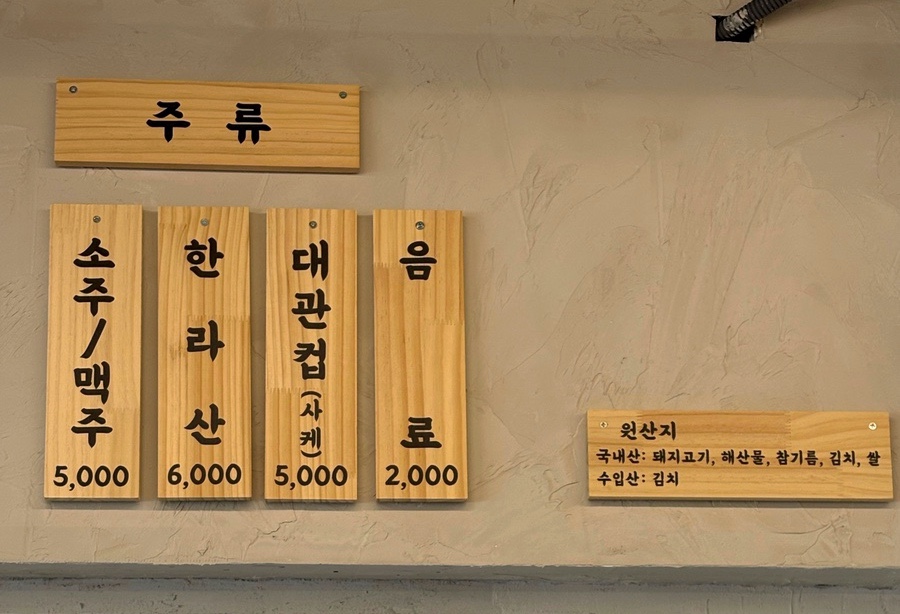 주류
소주/맥주
5,000
한라산
6,000
대관컵(사케)
5,000
음료
2,000
원산지
국내산: 돼지고기, 해산물, 참기름, 김치, 쌀
수입산: 김치